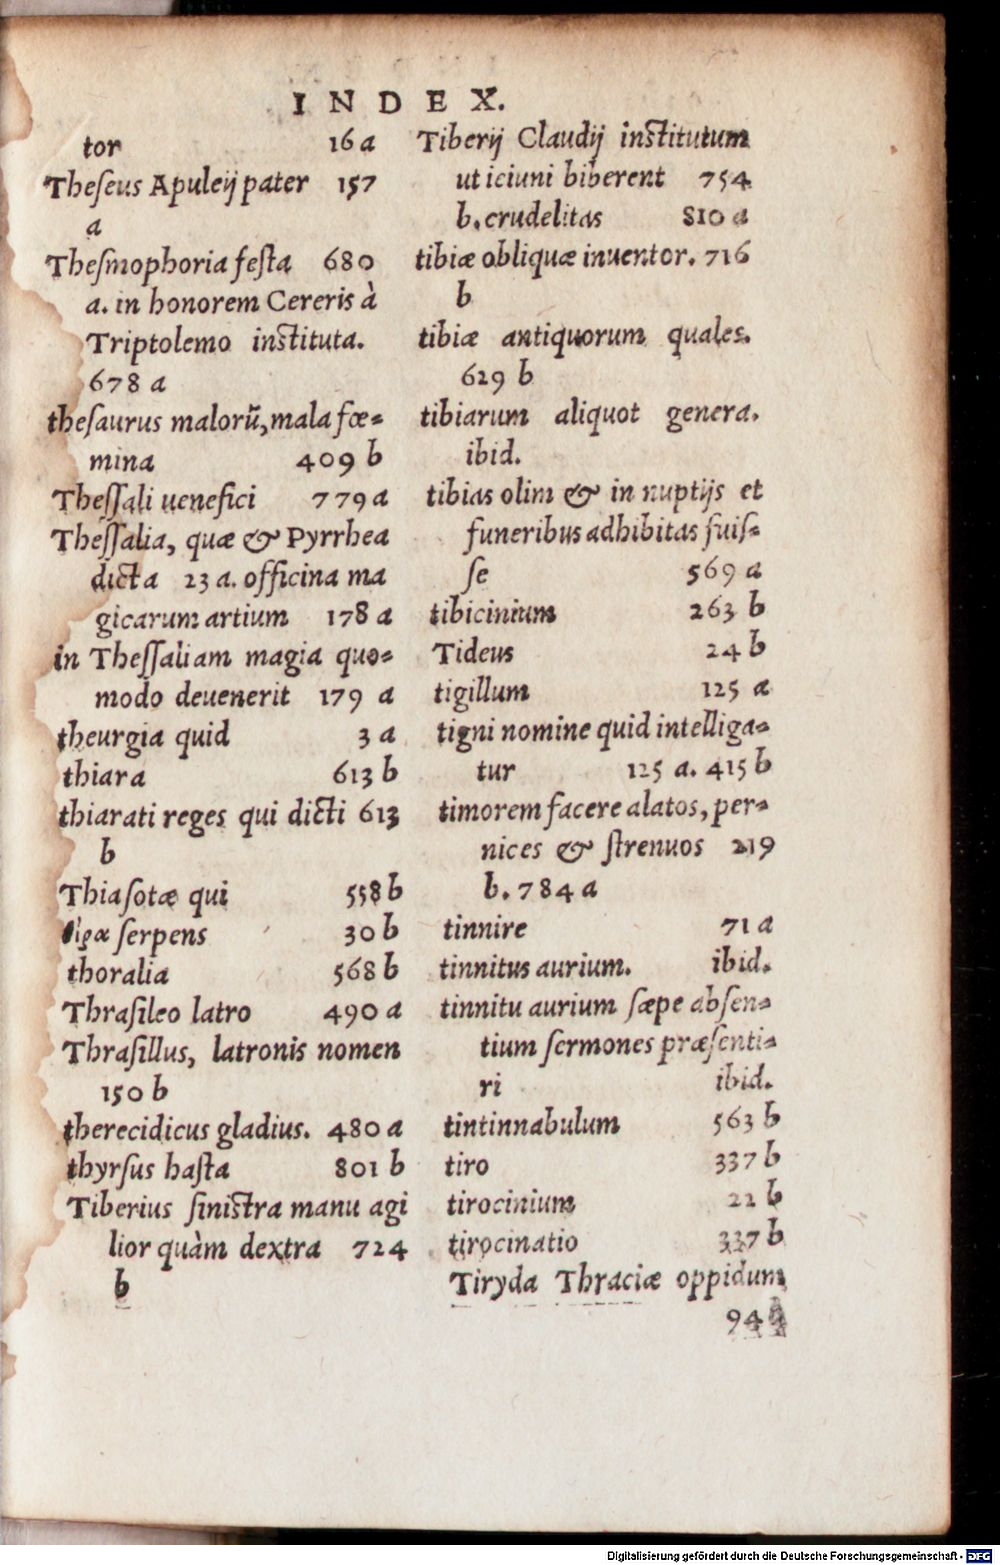 INDEX.
tor 16 a
Theſeus Apuleij pater 157
a
Theſmophoria feſta 680
a. in honorem Cereris à
Triptolemo inſtituta.
678 a
theſaurus malorũ, mala fœ-
mina 409 b
Theſſali uenefici 779 a
Theſſalia, quæ & Pyrrhea
dicta 23 a. officina ma
gicarum artium 178 a
in Theſſaliam magia quo-
modo deuenerit 179 a
theurgia quid 3 a
thiara 613 b
thiarati reges qui dicti 613
b
Thiaſotæ qui 558 b
ſerpens 30 b
thoralia 568 b
Thraſileo latro 490 a
Thraſillus, latronis nomen
150 b
therecidicus gladius. 480 a
thyrſus haſta 801 b
Tiberius ſiniſtra manu agi
lior quàm dextra 724
b
Tiberij Claudij inſtitutum
ut iciuni biberent 754
b. crudelitas 810 a
tibiæ obliquæ inuentor. 716
b
tibiæ antiquorum quales.
629 b
tibiarum aliquot genera.
ibid.
tibias olim & in nuptijs et
funeribus adhibitas fuiſ-
ſe 569 a
tibicinium 263 b
Tideus 24 b
tigillum 125 a
tigni nomine quid intelliga-
tur 125 a. 415 b
timorem facere alatos, per-
nices & ſtrenuos 219
b. 784 a
tinnire 71 a
tinnitus aurium. ibid.
tinnitu aurium ſæpe abſen-
tium ſermones præſenti-
ri ibid.
tintinnabulum 563 b
tiro 337 b
tirocinium 22 b
tirocinatio 337 b
Tiryda Thraciæ oppidum
94
Digitalisierung gefördert durch die Deutsche Forschungsgemeinschaft - DFG